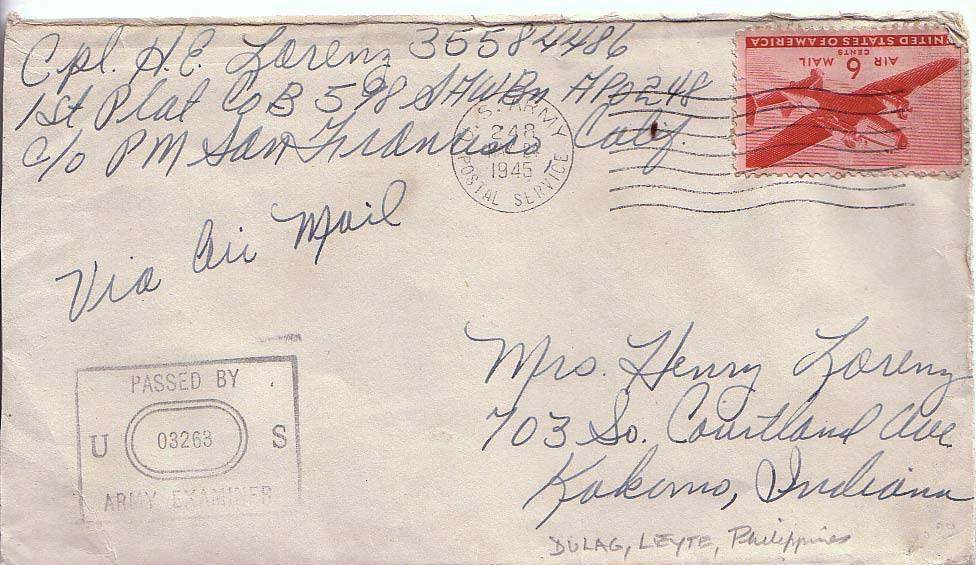 Cpl. H.E. Lorenz 35584486
1st Plat Co B 598 SAWBn APO 248
c/o PM San Francisco Calif.
U.S. ARMY
248
1945
POSTAL SERVICE
UNITED STATES OF AMERICA
6 CENTS
AIR MAIL
Via Air Mail
PASSED BY
U 03263 S
ARMY EXAMINER
Mrs. Henry Lorenz
703 So. Courtland Ave
Kokomo, Indiana
DULAG, LEYTE, Philippines